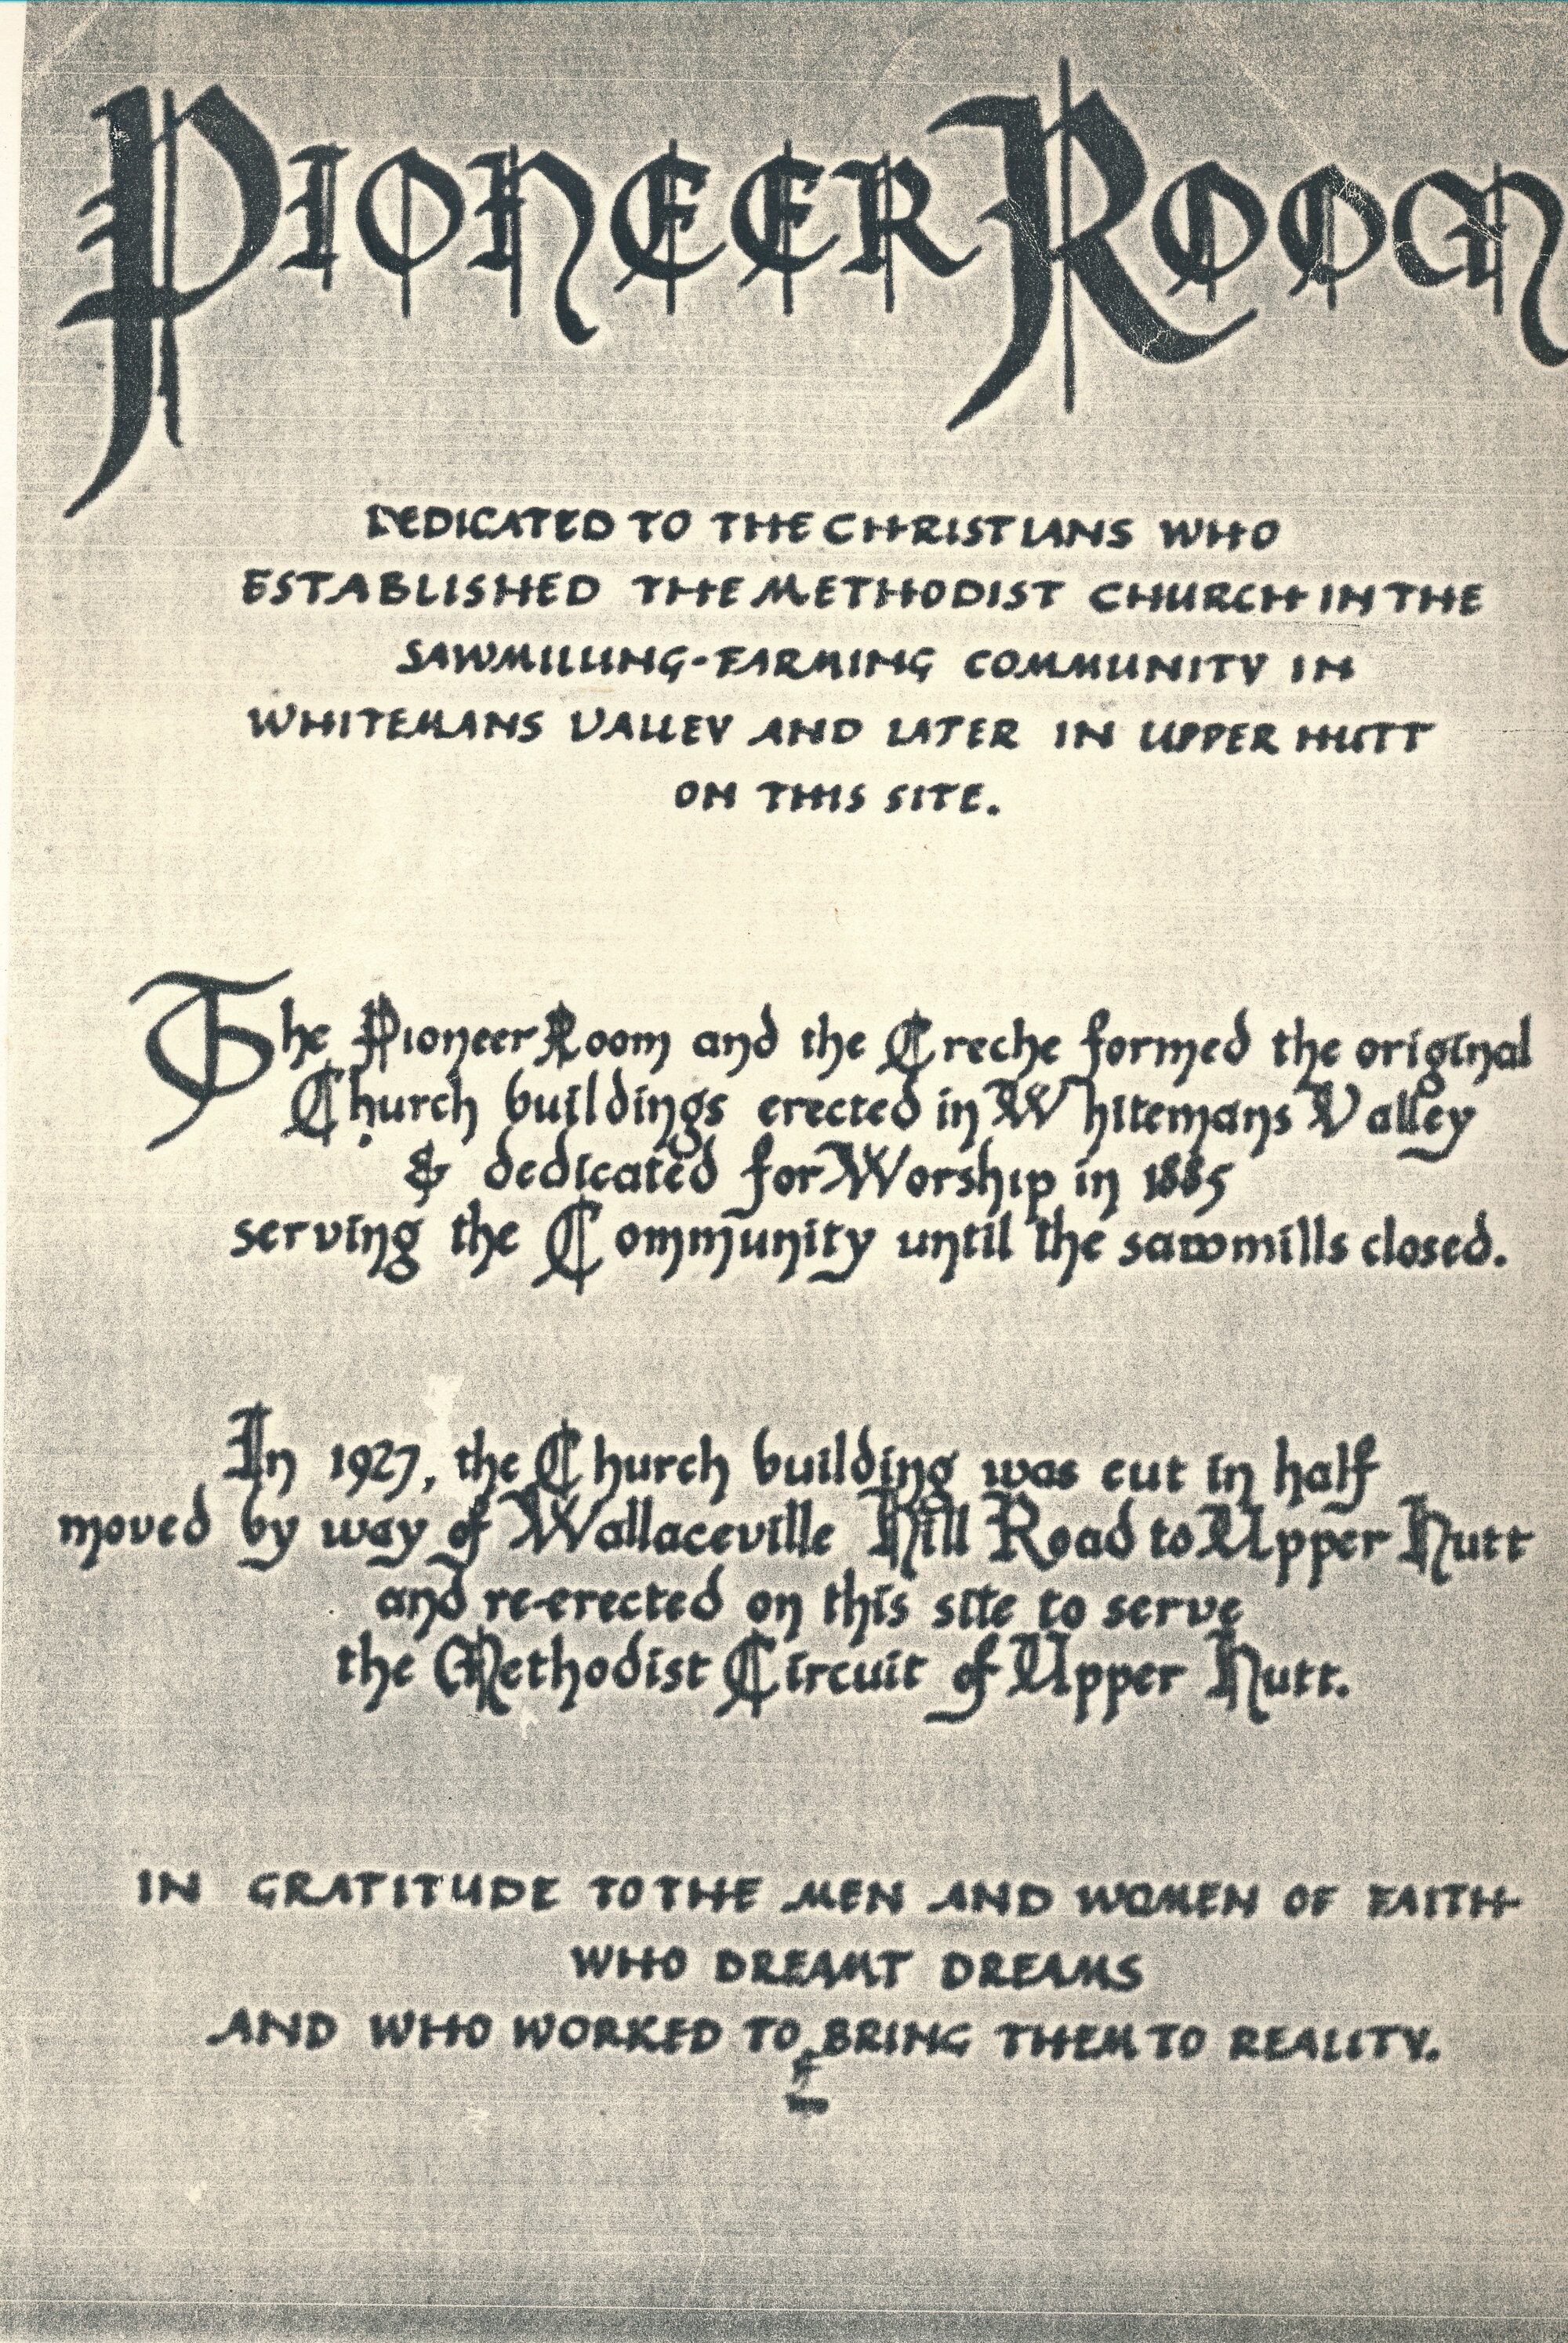 Pioneer Room
DEDICATED TO THE CHRISTIANS WHO
ESTABLISHED THE METHODIST CHURCH IN THE
SAWMILLING-FARMING COMMUNITY IN
WHITEMANS VALLEY AND LATER IN UPPER HUTT
ON THIS SITE.
The Pioneer Room and the Creche formed the original
Church buildings erected in Whitemans Valley
& dedicated for Worship in 1885
serving the Community until the sawmills closed.
In 1927, the Church building was cut in half
moved by way of Wallaceville Hill Road to Upper Hutt
and re-erected on this site to serve
the Methodist Circuit of Upper Hutt.
IN GRATITUDE TO THE MEN AND WOMEN OF FAITH
WHO DREAMT DREAMS
AND WHO WORKED TO BRING THEM TO REALITY.